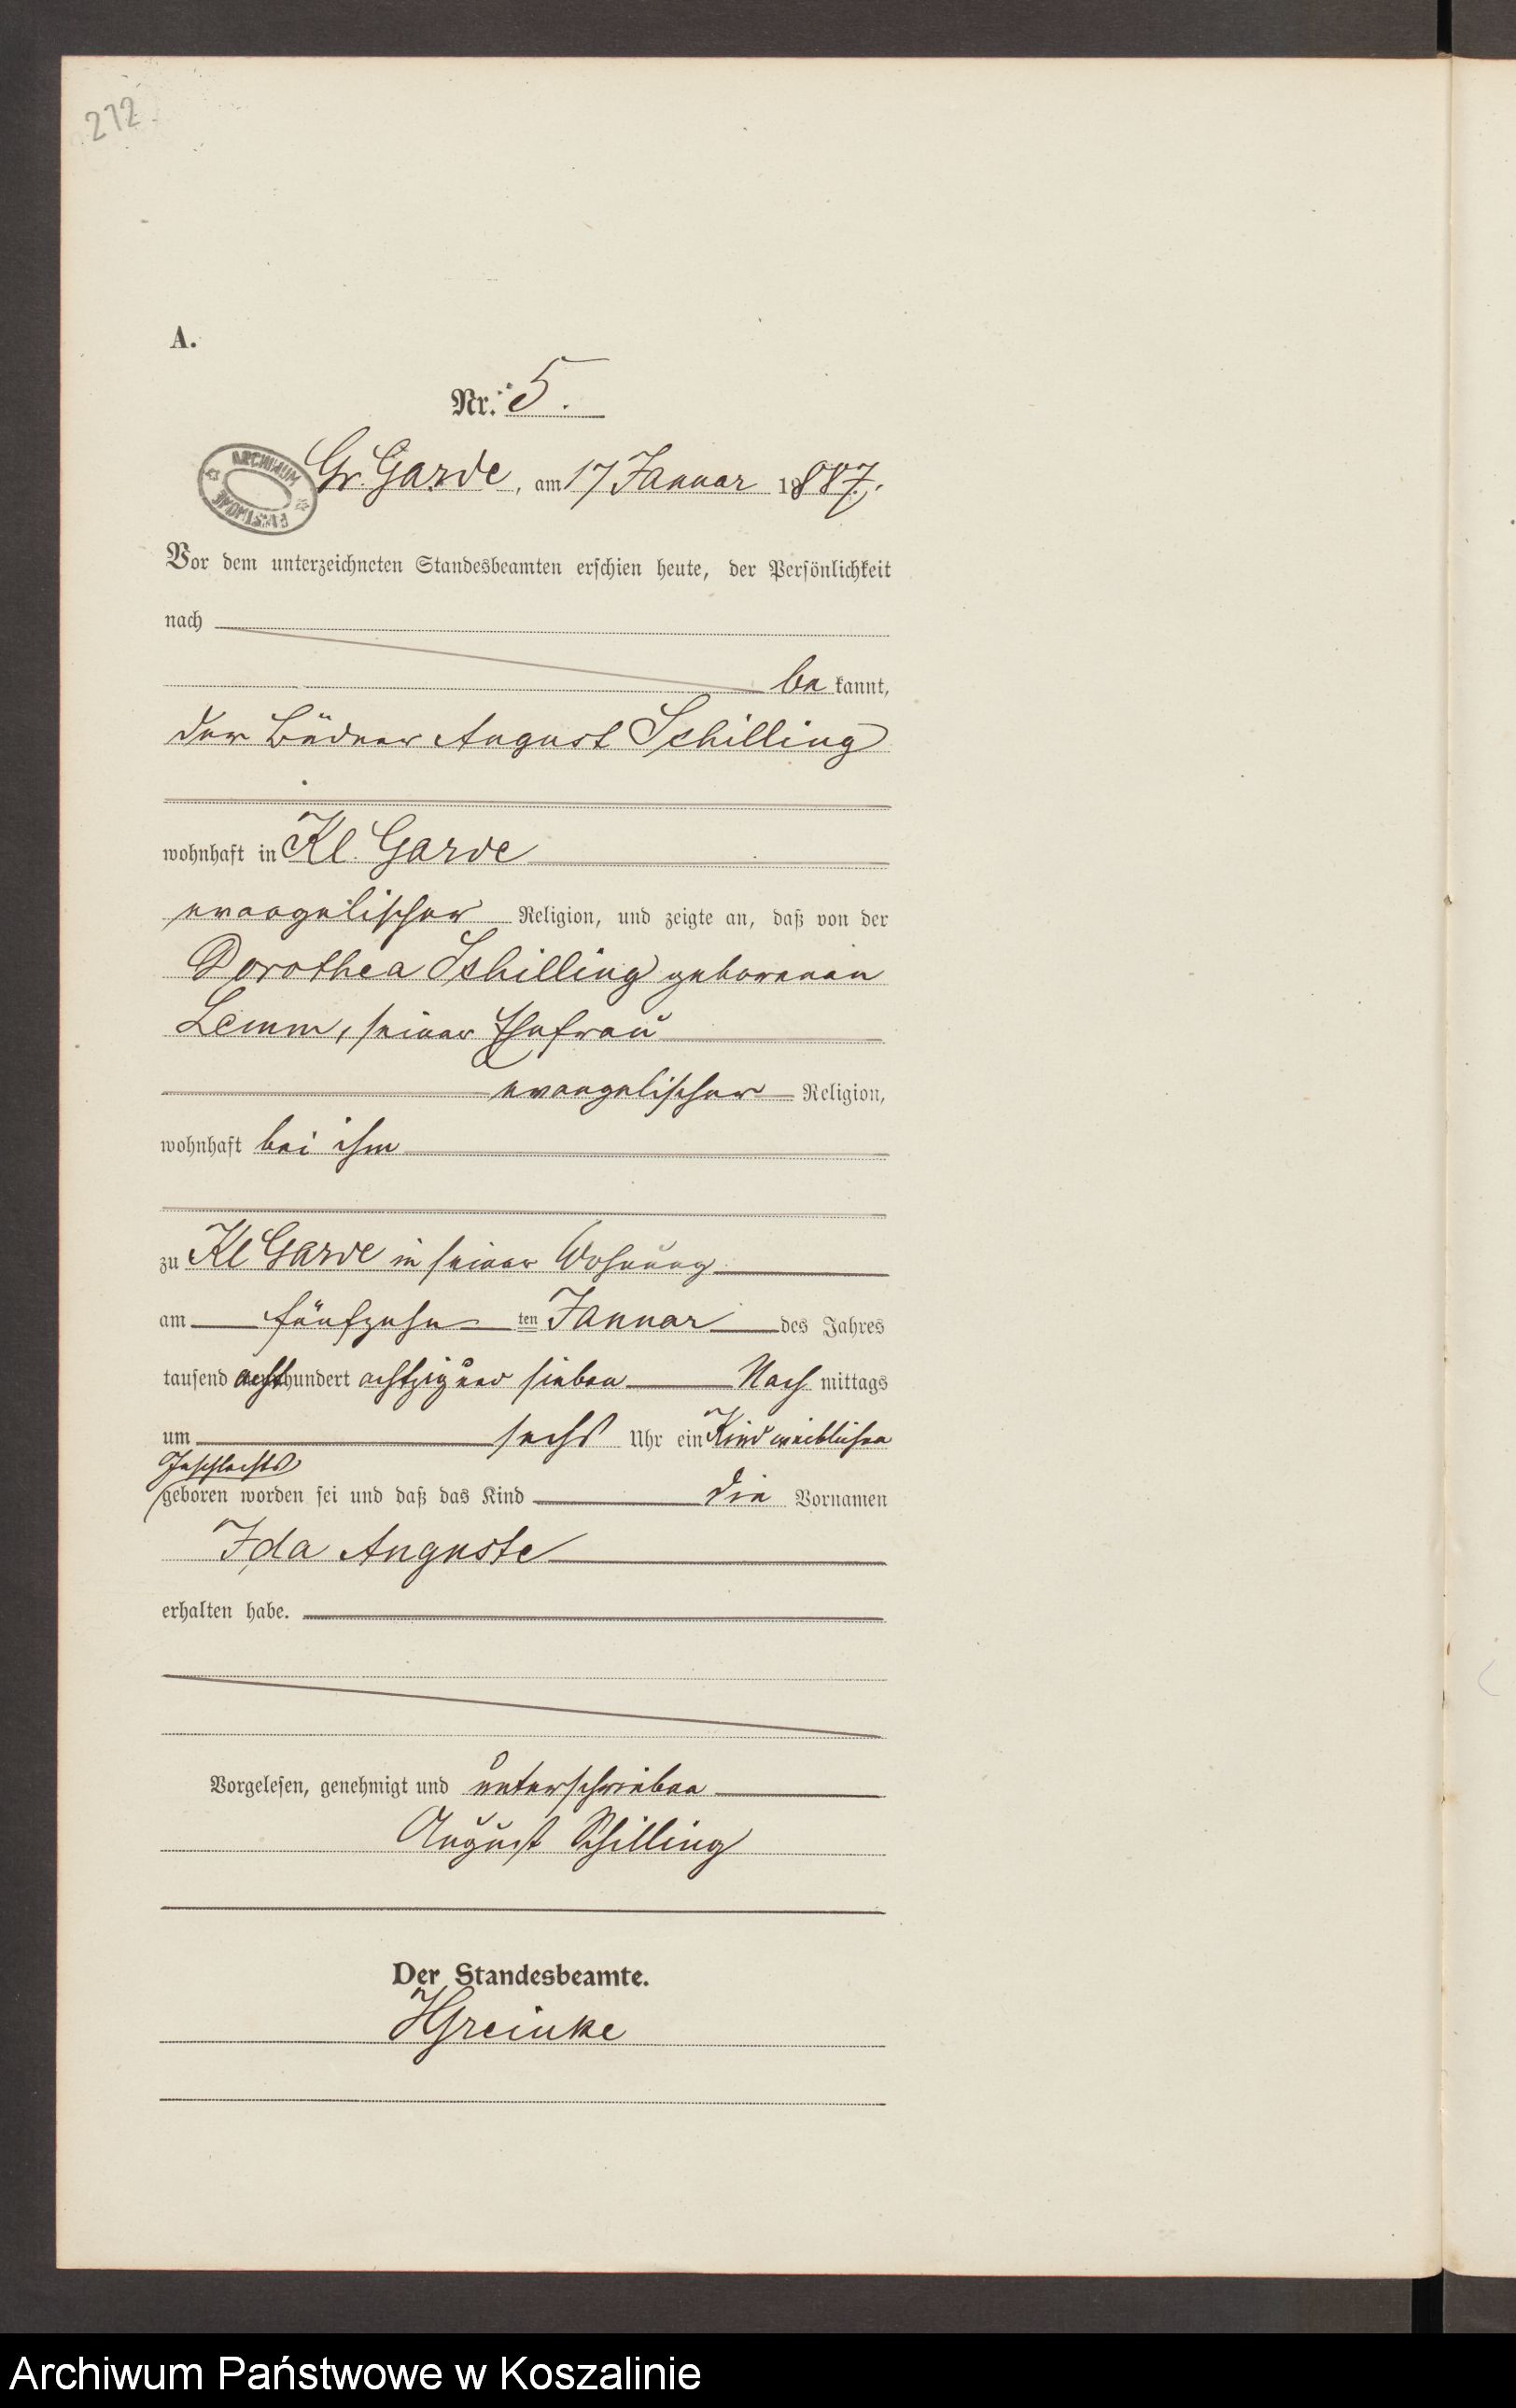 272
A.
Nr. 5.
ARCHIWUM PAŃSTWOWE
Gr. Garde, am 17 Januar 1887.
Vor dem unterzeichneten Standesbeamten erschien heute, der Persönlichkeit
nach
be kannt,
der Büdner August Schilling
wohnhaft in Kl. Garde
evangelischer Religion, und zeigte an, daß von der
Dorothea Schilling geborenen
Lemm, seiner Ehefrau
evangelischer Religion,
wohnhaft bei ihm
zu Kl Garde in seiner Wohnung
am fünfzehn ten Januar des Jahres
tausend acht hundert achtzig und sieben Nach mittags
um sechs Uhr ein Kind weiblichen
Geschlechts
geboren worden sei und daß das Kind die Vornamen
Ida Auguste
erhalten habe.
Vorgelesen, genehmigt und unterschrieben
August Schilling
Der Standesbeamte.
HGreinke
Archiwum Państwowe w Koszalinie